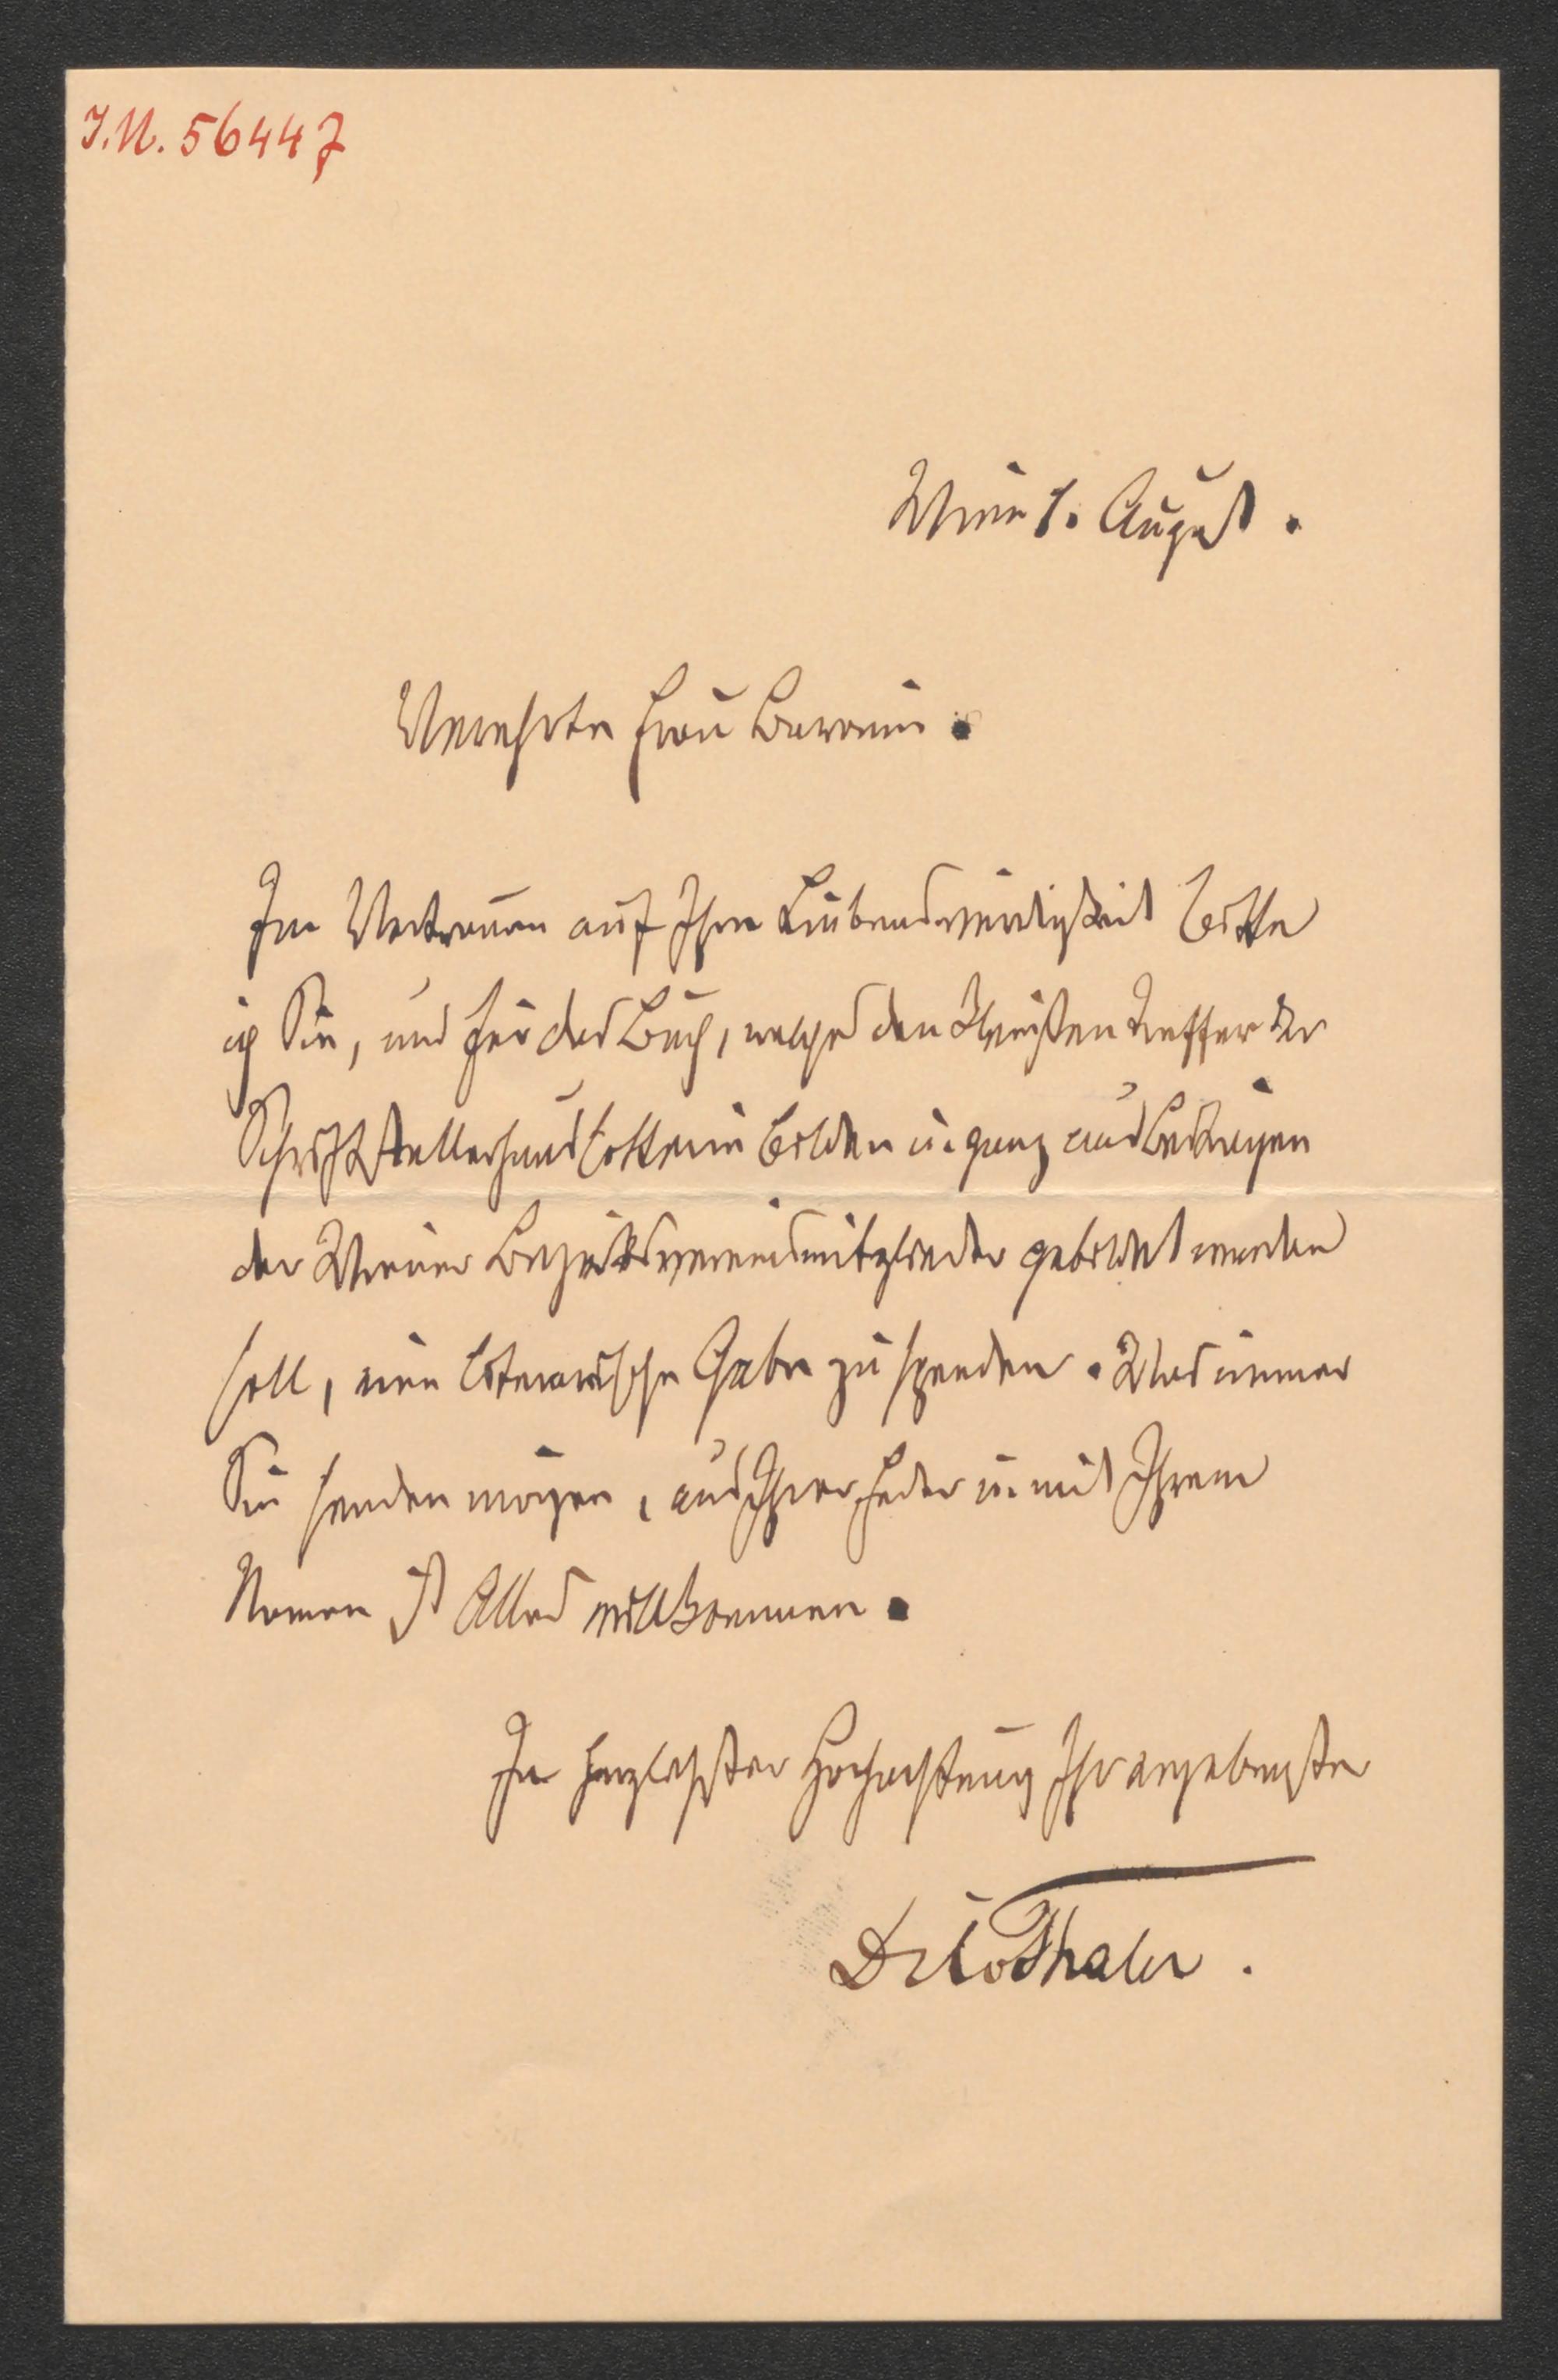 I.N. 56447
Wien 1. August.
Verehrte Frau Baronin.
Im Vertrauen auf Ihre Liebenswürdigkeit bitte
ich Sie, uns für das Buch, welches den kleinsten Treffer der
Schriftstellerhauslotterie bilden u. ganz aus Beiträgen
der Wiener Bezirksvereinsmitglieder gebildet werden
soll, eine literarische Gabe zu spenden. Was immer
Sie senden mögen, aus Ihrer Feder u. mit Ihrem
Namen ist Alles willkommen.
In herzlichster Hochachtung Ihr ergebenster
Dr Thaler.